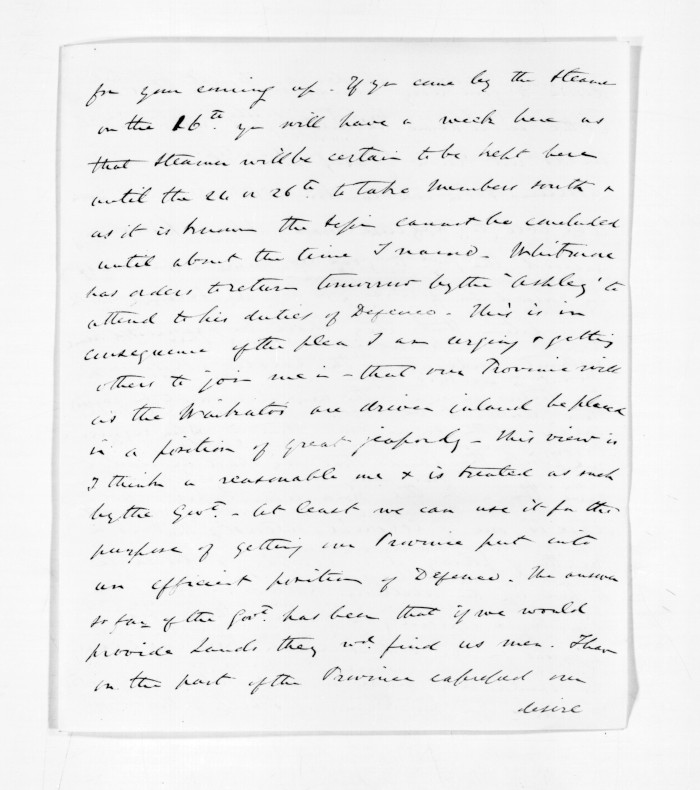 for your coming up. If you come by the Steamer
on the 16th. you will have a week here as
that Steamer will be certain to be kept here
until the 24 or 26th to take Members south &
as it is known the Session cannot be concluded
until about the time I named - Whitmore
has orders to return tomorrow by the 'Ashley' to
attend to his duties of Defence. This is in
consequence of the plea I am urging & getting
others to join me in - that our Province will
as the Waikatos are driven inland be placed
in a position of great jeopardy - This view is
I think a reasonable one & is treated as such
by the Govt. - At least we can use it for the
purpose of getting our Province put into
an efficient position of Defence. The answer
so far of the Govt. has been that if we would
provide Lands they wd. find us men. I have
on the part of the Province expressed our
desire